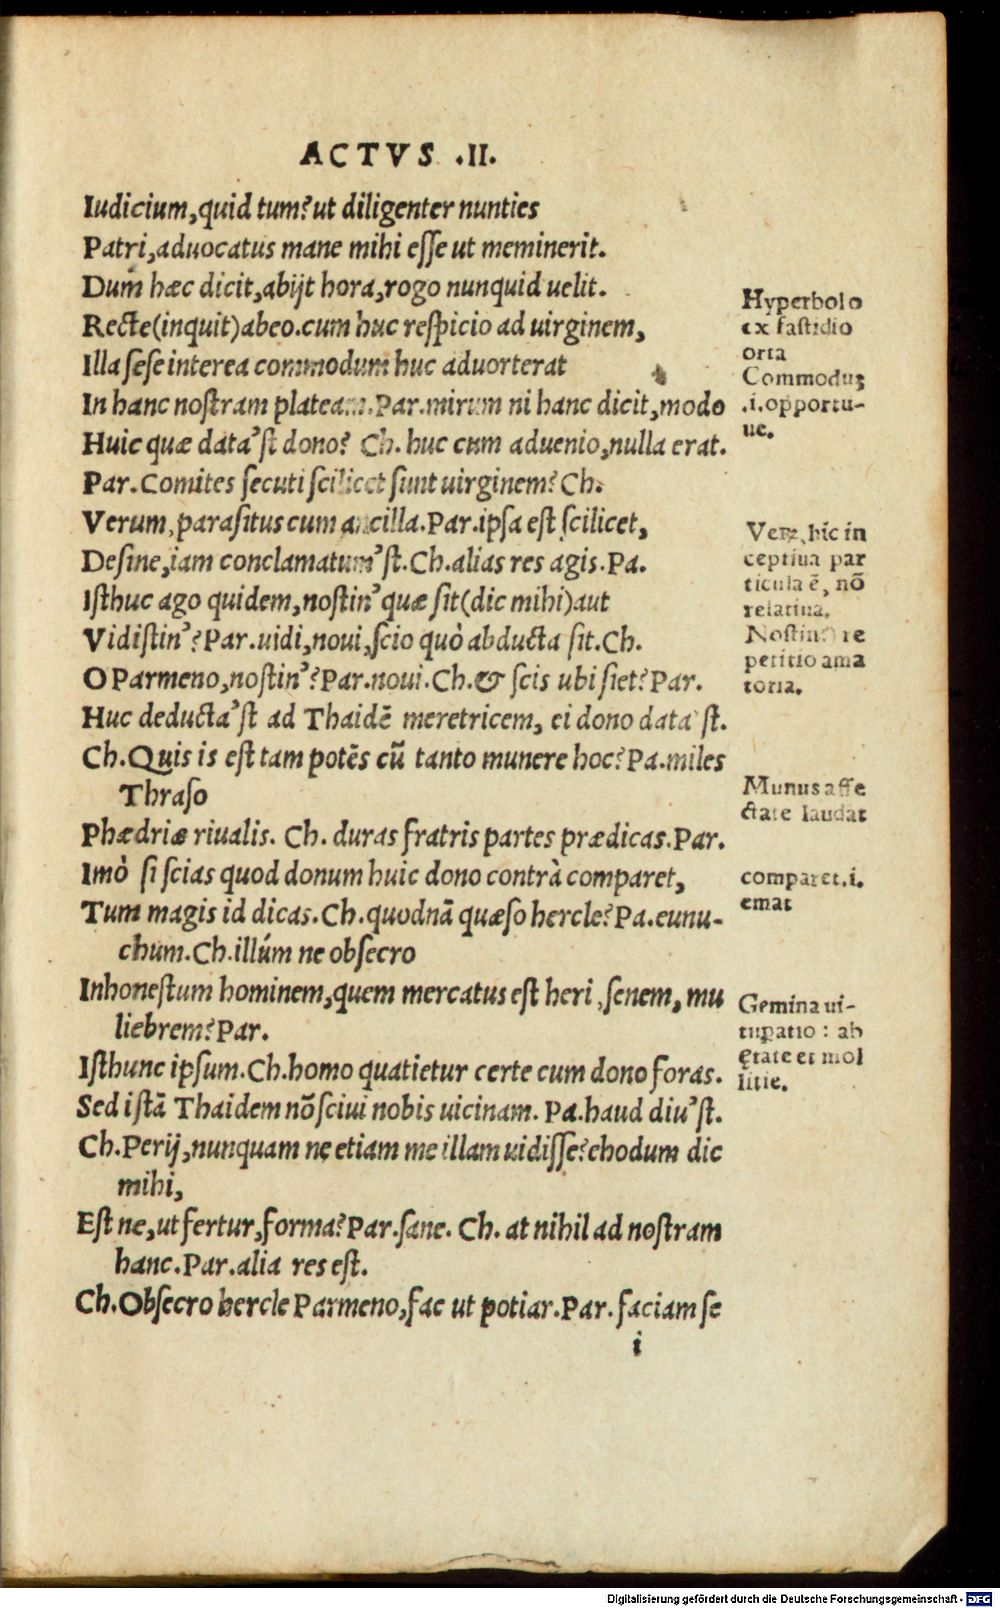 ACTVS .II.
Iudicium, quid tum? ut diligenter nunties
Patri, aduocatus mane mihi esse ut meminerit.
Dum hæc dicit, abijt hora, rogo nunquid uelit.
Recte (inquit) abeo. cum huc respicio ad uirginem,
Illa sese interea commodum huc aduorterat
In hanc nostram plateam. Par. mirum ni hanc dicit, modo
Huic quæ data'st dono? Ch. huc cum aduenio, nulla erat.
Par. Comites secuti scilicet sunt uirginem? Ch.
Verum, parasitus cum ancilla. Par. ipsa est scilicet,
Desine, iam conclamatum'st. Ch. alias res agis. Pa.
Isthuc ago quidem, nostin' quæ sit (dic mihi) aut
Vidistin'? Par. uidi, noui, scio quò abducta sit. Ch.
O Parmeno, nostin'? Par. noui. Ch. & scis ubi siet? Par.
Huc deducta'st ad Thaidē meretricem, ei dono data'st.
Ch. Quis is est tam potēs cū tanto munere hoc? Pa. miles
Thraso
Phædriæ riualis. Ch. duras fratris partes prædicas. Par.
Imò si scias quod donum huic dono contrà comparet,
Tum magis id dicas. Ch. quodnā quæso hercle? Pa. eunu-
chum. Ch. illúm ne obsecro
Inhonestum hominem, quem mercatus est heri, senem, mu
liebrem? Par.
Isthunc ipsum. Ch. homo quatietur certe cum dono foras.
Sed istā Thaidem nō sciui nobis uicinam. Pa. haud diu'st.
Ch. Perij, nunquam ne etiam me illam uidisse? ehodum dic
mihi,
Est ne, ut fertur, forma? Par. sane. Ch. at nihil ad nostram
hanc. Par. alia res est.
Ch. Obsecro hercle Parmeno, fac ut potiar. Par. faciam se
i
Hyperbole
ex fastidio
orta
Commoduꝫ
.i. opportu-
ue.
Verꝫ, hic in
ceptiua par
ticula ē, nō
relatiua.
Nostin?) re
petitio ama
toria.
Munus affe
ctate laudat
comparet .i.
emat
Gemina ui-
tuꝑatio : ab
ętate et mol
litie.
Digitalisierung gefördert durch die Deutsche Forschungsgemeinschaft - DFG